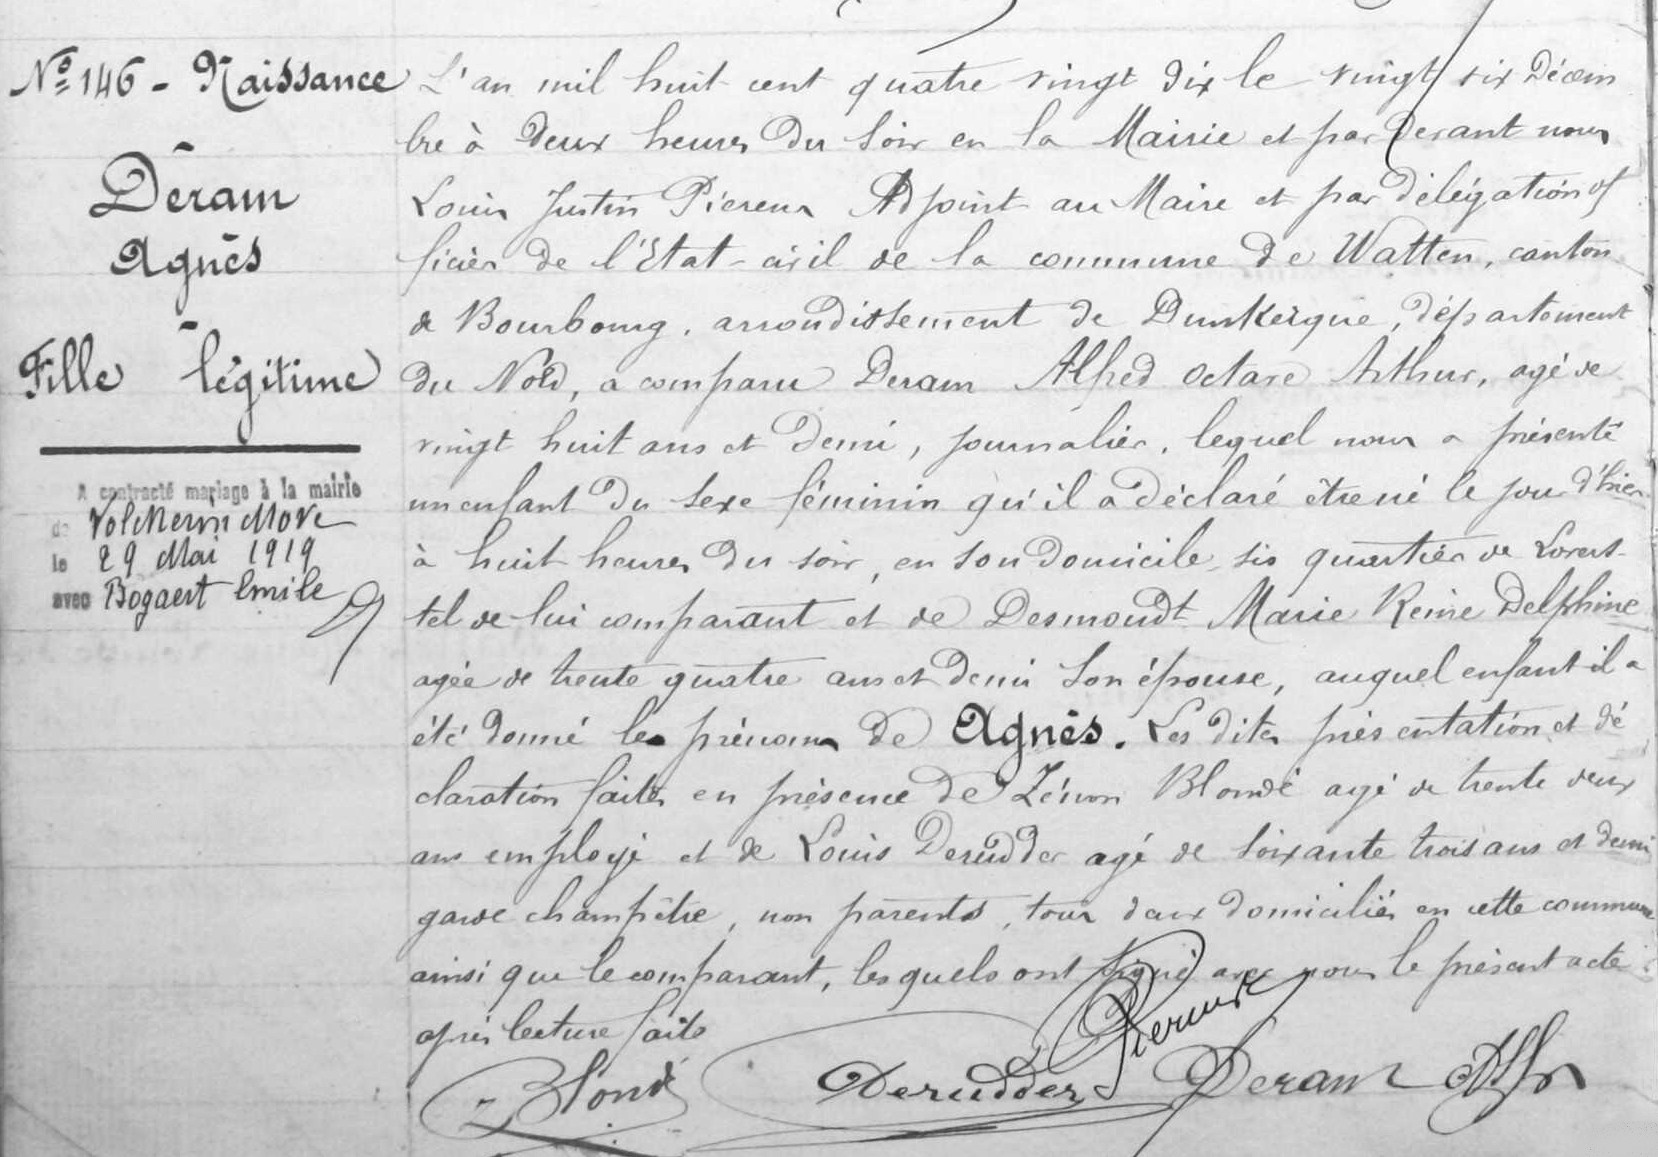 Nº 146 - Naissance
Deram
Agnès
Fille légitime
A contracté mariage à la mairie
de Volckerinckhove
le 29 Mai 1919
avec Bogaert Emile
L'an mil huit cent quatre vingt dix le vingt six Décem
bre à deux heures du soir en la Mairie et par devant nous
Louis Justin Pierens Adjoint au Maire et par délégation of
ficier de l'Etat-civil de la commune de Watten, canton
de Bourbourg, arrondissement de Dunkerque, département
du Nord, a comparu Deram Alfred Octave Arthur, agé de
vingt huit ans et demi, journalier, lequel nous a présenté
un enfant du sexe féminin qu'il a déclaré être né le jour d'hier
à huit heures du soir, en son domicile sis quartier de
tel de lui comparant et de Desmoudt Marie Reine Delphine
agée de trente quatre ans et demi son épouse, auquel enfant il a
été donné les prénoms de Agnès. Les dites présentation et dé
claration faites en présence de Zénon Blondé agé de trente deux
ans employé et de Louis Derudder agé de soixante trois ans et demi
garde champêtre, non parents, tous deux domiciliés en cette commune
ainsi que le comparant, lesquels ont signé avec nous le présent acte
après lecture faite
Z Blondé
Derudder
Deram Alf